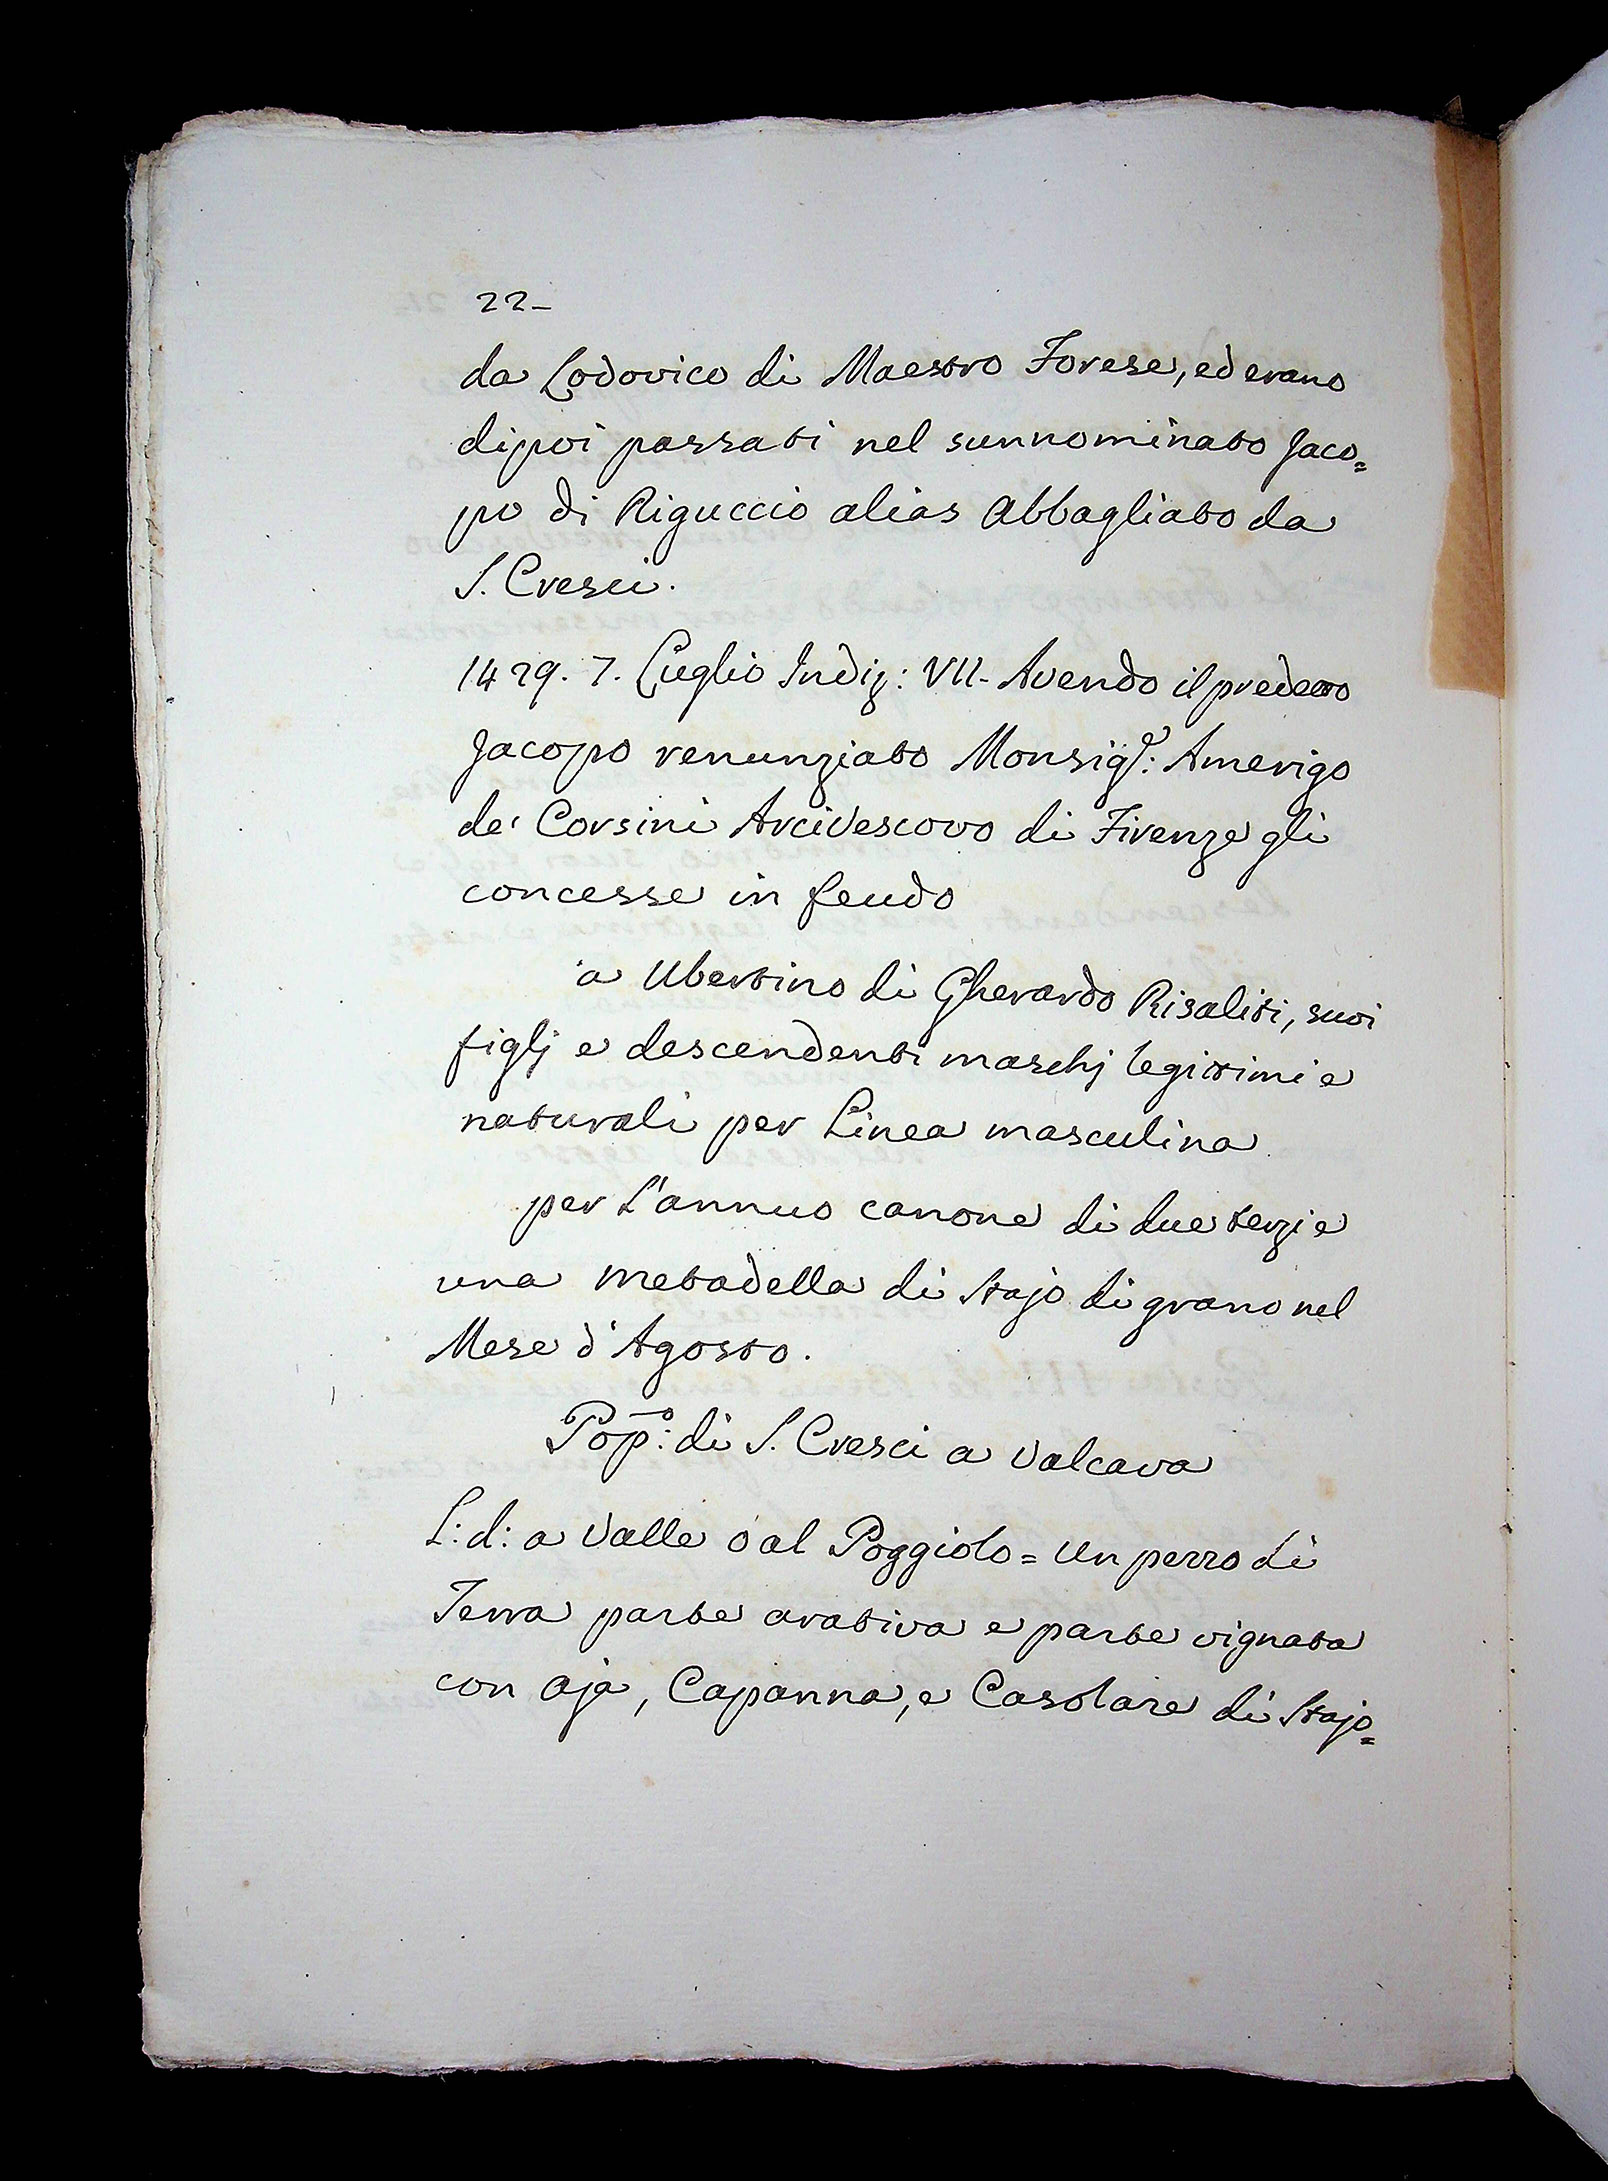 22_
da Lodovico di Maestro Forese, ed erano
dipoi passati nel sunnominato Jaco=
po di Riguccio alias Abbagliato da
S. Cresci.
1429. 7. Luglio Indiz: VII- Avendo il predetto
Jacopo renunziato Monsig.e: Amerigo
de' Corsini Arcivescovo di Firenze gli
concesse in feudo
a Ubertino di Gherardo Risaliti, suoi
figlj e descendenti maschj legittimi e
naturali per Linea masculina
per l'annuo canone di due terzi e
una metadella di Stajo di grano nel
Mese d'Agosto.
Pop.o: di S. Cresci a Valcava
L: d: a Valle o al Poggiolo = Un pezzo di
Terra parte arativa e parte vignata
con aja, Capanna, e Casolare di Stajo=